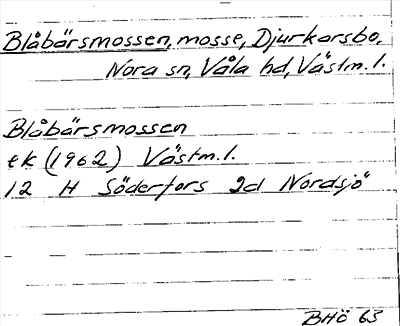 Blåbärsmossen, mosse, Djurkarsbo,
Nora sn, Våla hd, Västm.l.
Blåbärsmossen
ek (1962) Västm.l.
12 H Söderfors 2d Nordsjö
BHÖ 63